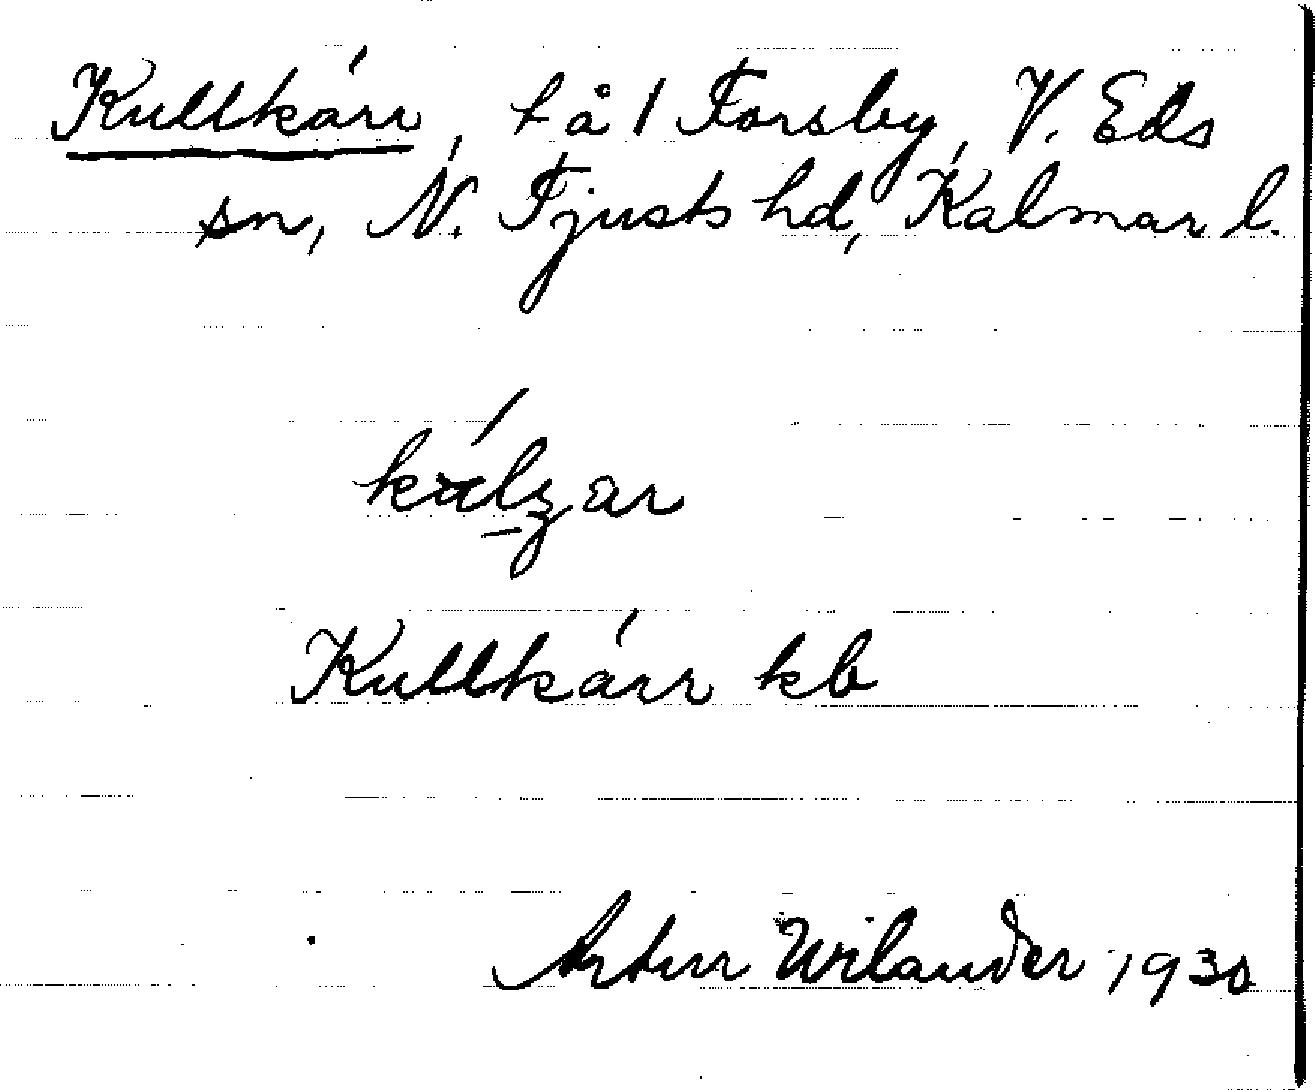 Kullkärr, t å 1 Forsby, V. Eds
sn, N. Tjusts hd, Kalmar l.
Kullkärr kb
Artur Wilander 1930